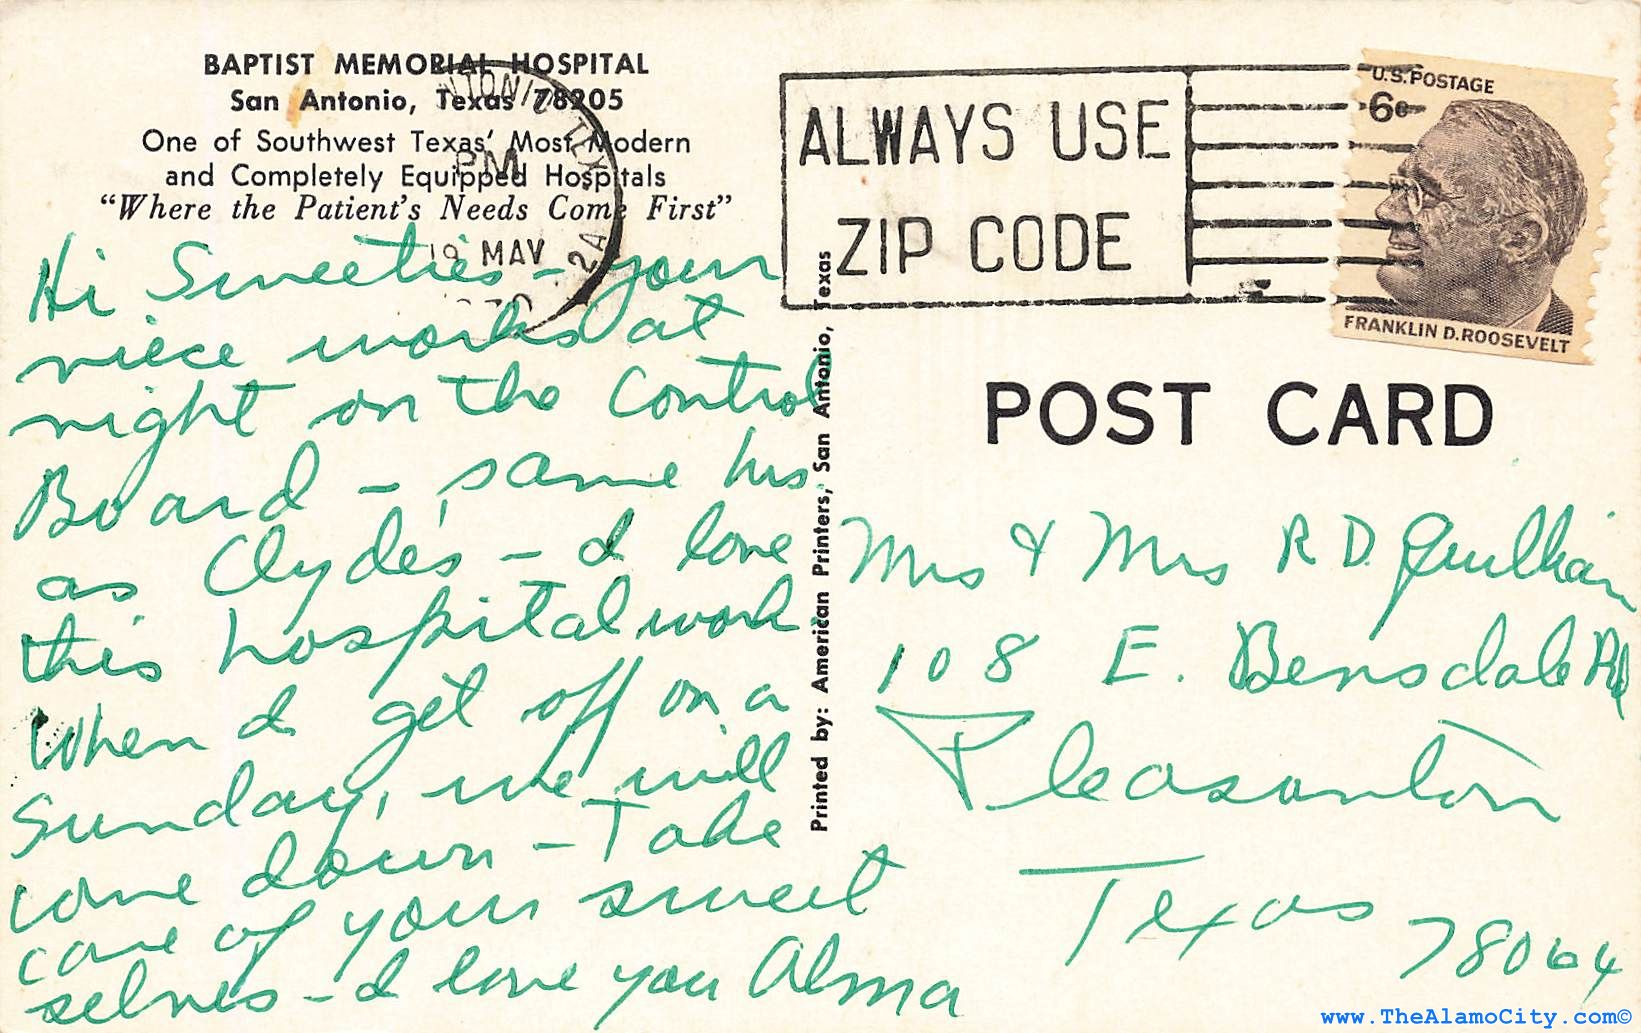 BAPTIST MEMORIAL HOSPITAL
San Antonio, Texas 78205
One of Southwest Texas' Most Modern
and Completely Equipped Hospitals
"Where the Patient's Needs Come First"
Hi Sweeties - your
niece works at
night on the Control
Board - same hrs.
as Clyde's - I love
this hospital work
When I get off on a
Sunday, we will
come down - Take
care of your sweet
selves - I love you Alma
Printed by: American Printers, San Antonio, Texas
NTONIO, TEX
PM
MAY
2A
ALWAYS USE
ZIP CODE
U.S. POSTAGE
6c
FRANKLIN D. ROOSEVELT
POST CARD
Mrs & Mrs R D
108 E. Bensdale Rd
Pleasanton
Texas 78064
www.TheAlamoCity.com©